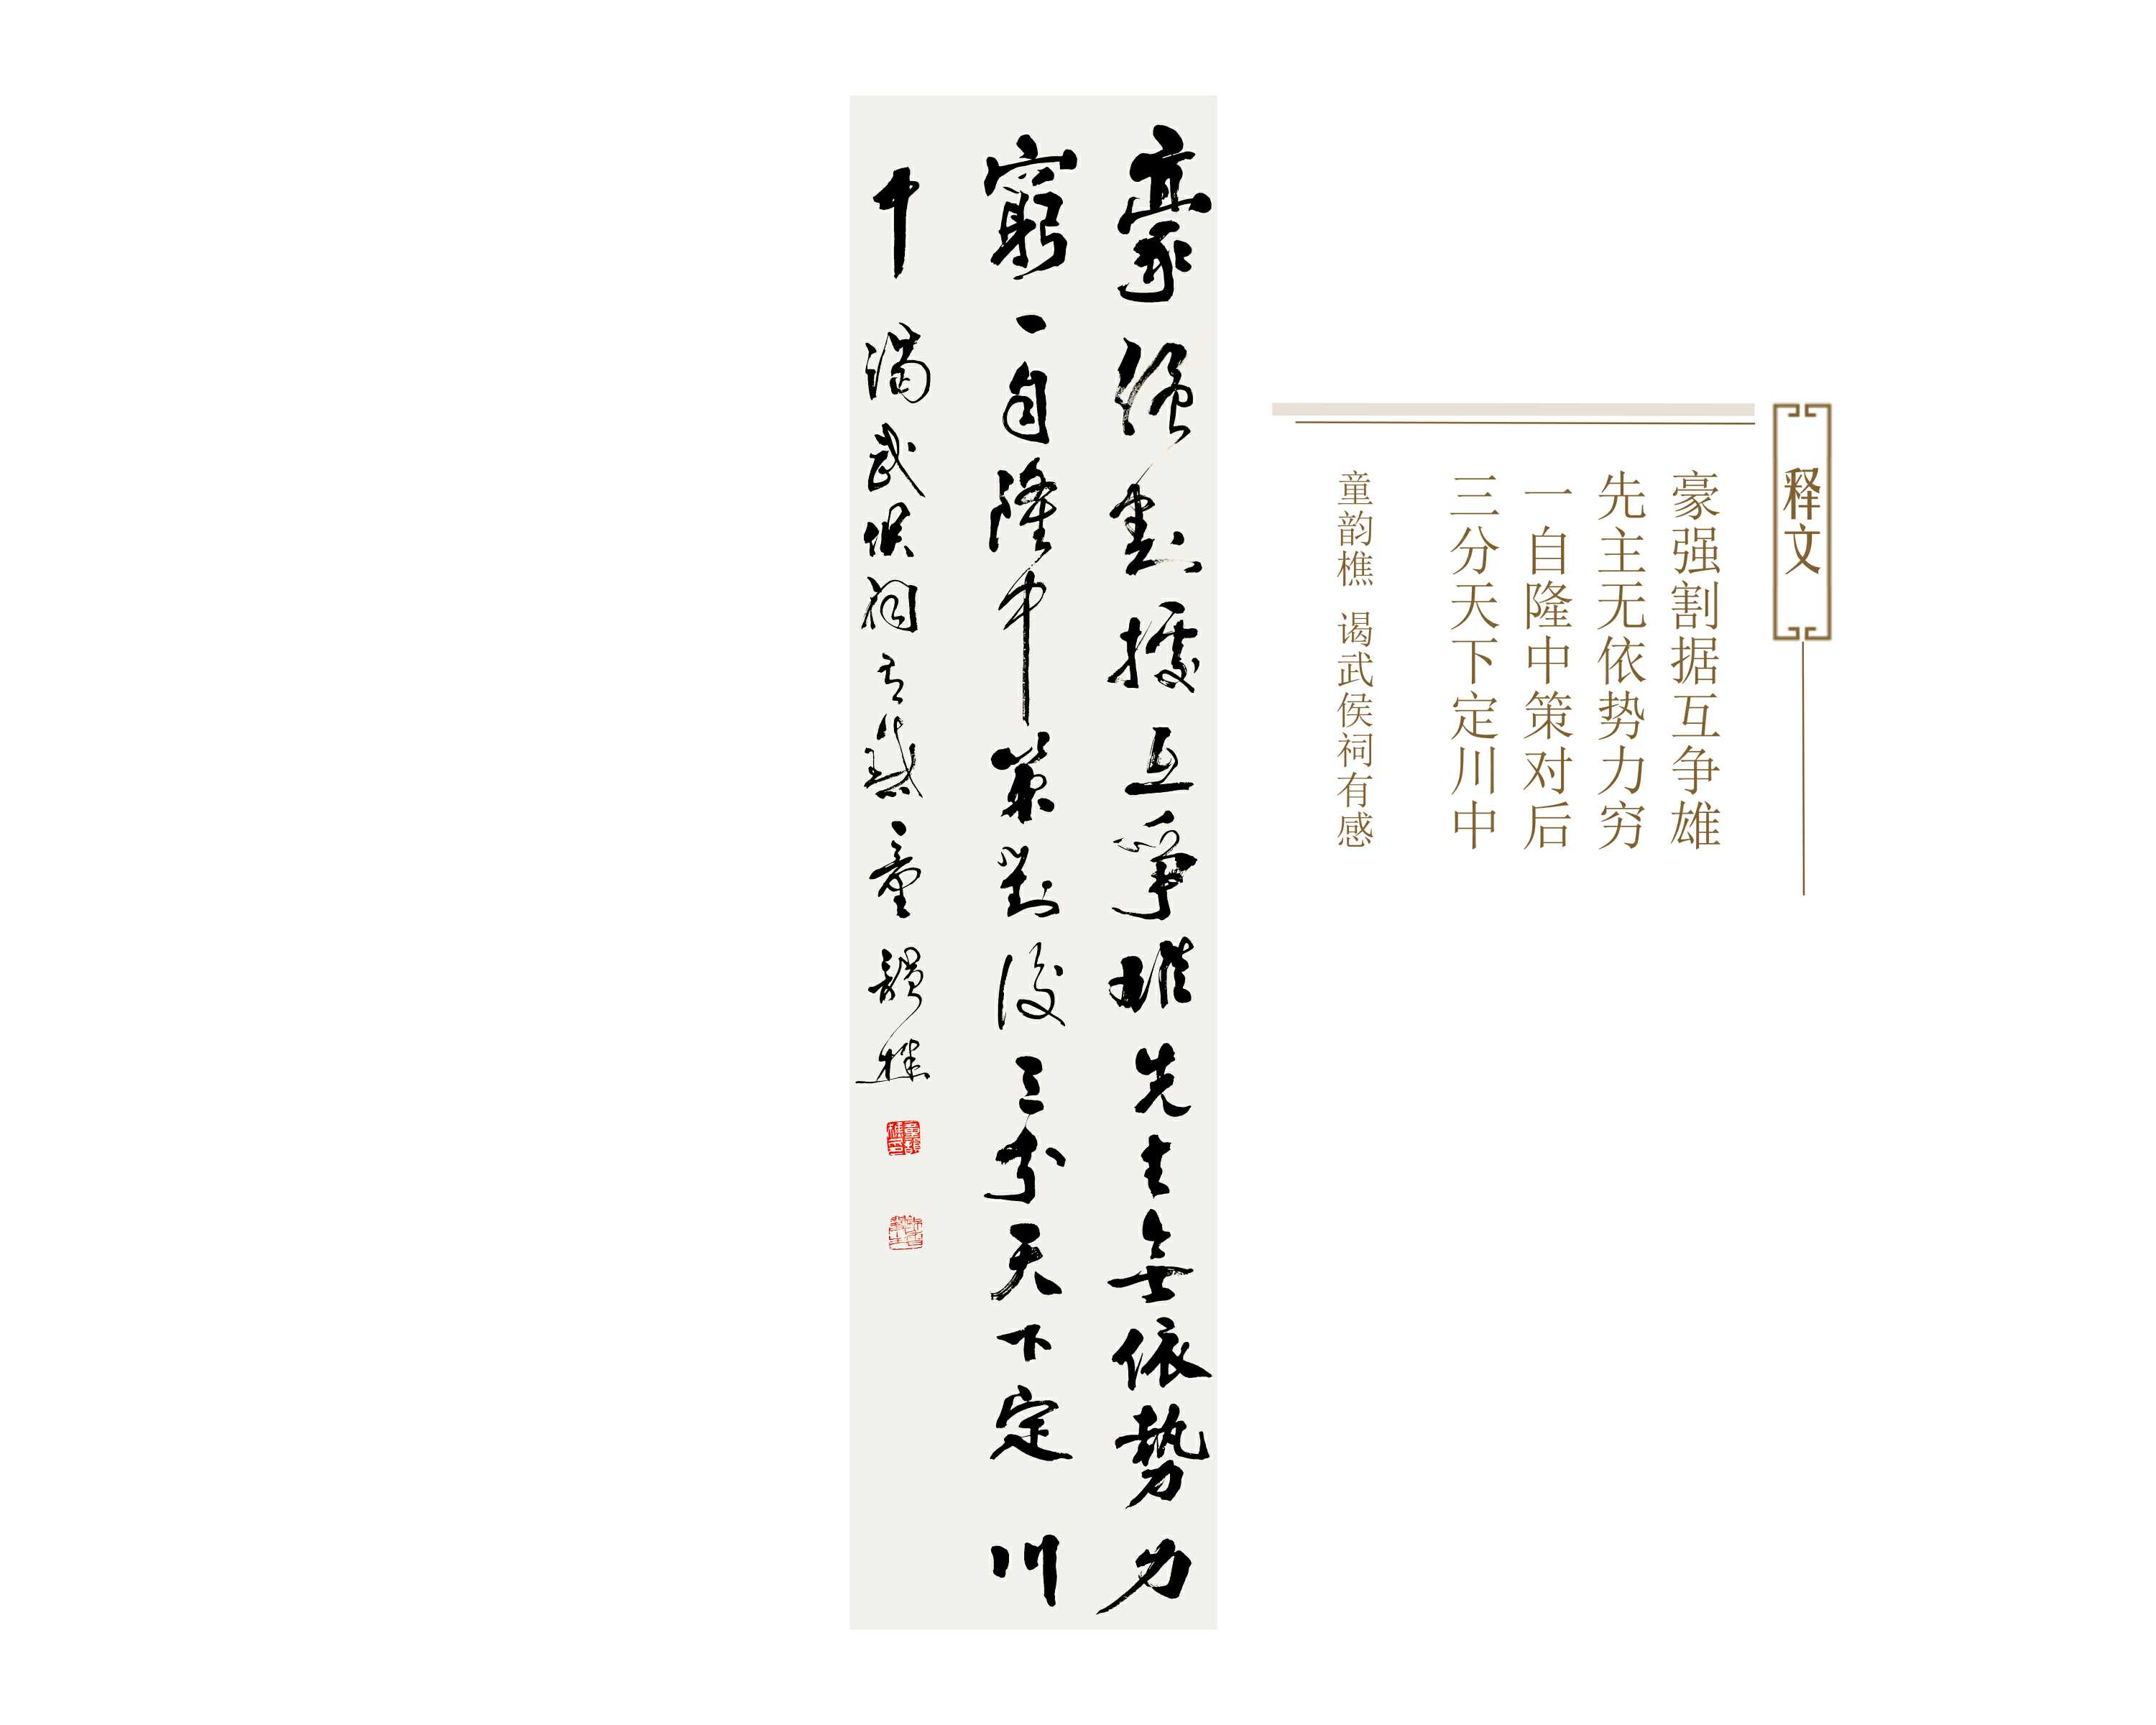 释文
豪强割据互争雄
先主无依势力穷
一自隆中策对后
三分天下定川中
童韵樵 谒武侯祠有感
豪强割據互爭雄先主無依勢力
窮一自隆中策對後三分天下定川
中 謁武侯祠有感 童韻樵